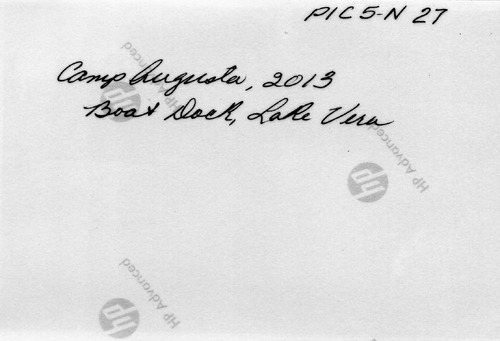 PIC5-N 27
Camp Augusta, 2013
Boat Dock, Lake Vera
HP Advanced
hp
HP Advanced
hp
HP Advanced
hp